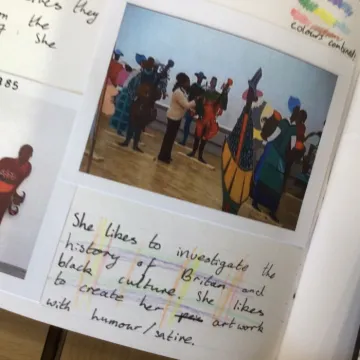 they
the
She
colours
985
She likes to investigate the
history of Britan and
black culture. She likes
to create her artwork
with humour/satire.